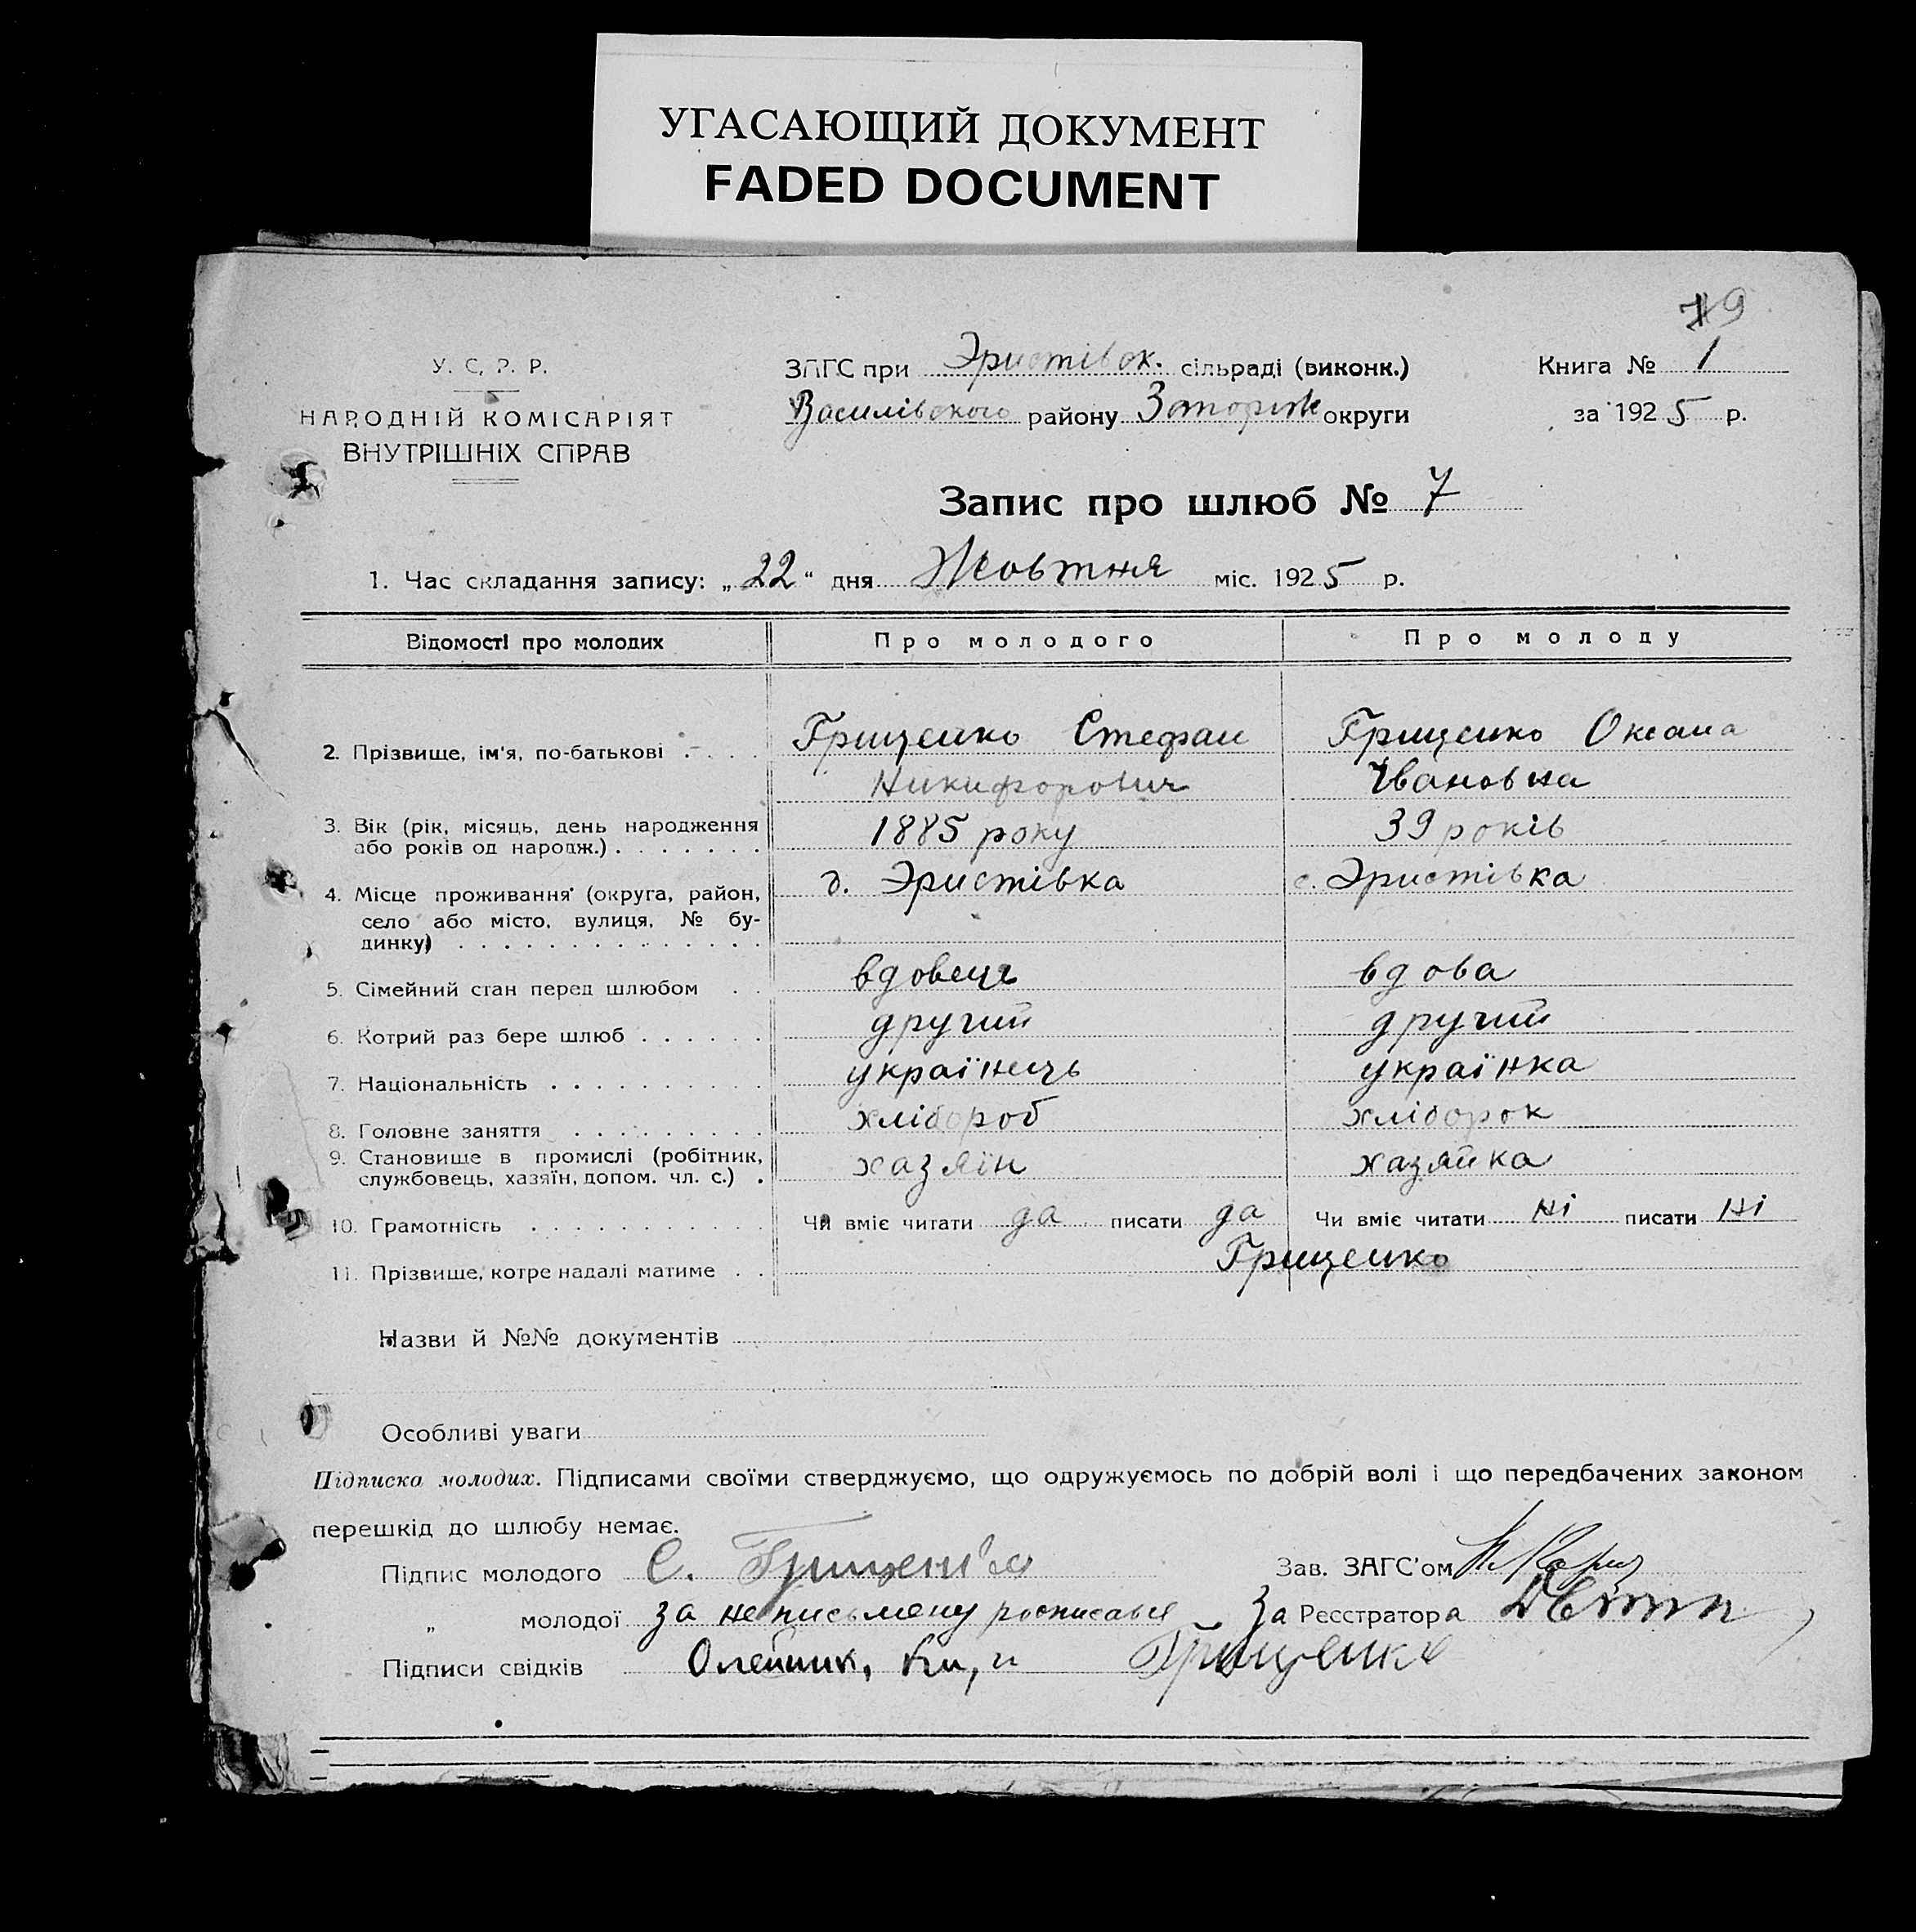 УГАСАЮЩИЙ ДОКУМЕНТ
FADED DOCUMENT
У. С. Р. Р.
НАРОДНІЙ КОМІСАРІЯТ
ВНУТРІШНІХ СПРАВ
ЗАГС при Эристівск. сільраді (виконк.)
Василівського району Запоріж округи
Книга № 1
за 1925 р.
Запис про шлюб № 7
1. Час складання запису: „22“ дня Жовтня міс. 1925 р.
Відомості про молодих Про молодого Про молоду
2. Прізвище, ім'я, по-батькові . . . . Грищенко Стефан Грищенко Оксана
Никифорович Івановна
3. Вік (рік, місяць, день народження 1885 року 39 років
або років од народж.) . . . . . . .
4. Місце проживання (округа, район, с. Эристівка с. Эристівка
село або місто, вулиця, № бу-
динку) . . . . . . . . . . . . . .
5. Сімейний стан перед шлюбом . . вдовець вдова
6. Котрий раз бере шлюб . . . . . . другий другий
7. Національність . . . . . . . . . . українець українка
8. Головне заняття . . . . . . . . . хлібороб хліборок
9. Становище в промислі (робітник, хазяїн хазяйка
службовець, хазяїн, допом. чл. с.) .
10. Грамотність . . . . . . . . . . . Чи вміє читати да писати да Чи вміє читати ні писати ні
11. Прізвище, котре надалі матиме . . Грищенко
Назви й №№ документів
Особливі уваги
Підписка молодих. Підписами своїми стверджуємо, що одружуємось по добрій волі і що передбачених законом
перешкід до шлюбу немає.
Підпис молодого С. Грищенко Зав. ЗАГС'ом
„ молодої за неписьмену росписався За Реєстратора
Підписи свідків Олейник, Грищенко